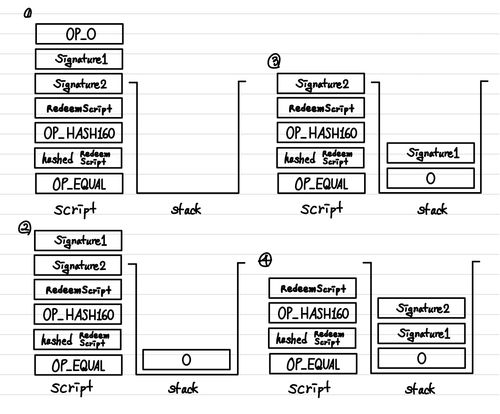 ①
OP_0
Signature1
Signature2
RedeemScript
OP_HASH160
hashed Redeem Script
OP_EQUAL
script
stack
②
Signature1
Signature2
RedeemScript
OP_HASH160
hashed Redeem Script
OP_EQUAL
script
0
stack
③
Signature2
RedeemScript
OP_HASH160
hashed Redeem Script
OP_EQUAL
script
Signature1
0
stack
④
RedeemScript
OP_HASH160
hashed Redeem Script
OP_EQUAL
script
Signature2
Signature1
0
stack